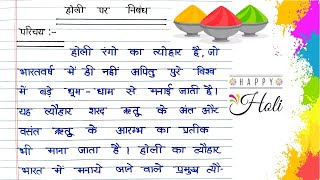 होली पर निबंध
परिचय :-
होली रंगो का त्यौहार है, जो
भारतवर्ष में ही नहीं अपितु पुरे विश्व
में बड़े धुम-धाम से मनाई जाती है।
यह त्यौहार शरद ऋतु के अंत और
वसंत ऋतु के आरम्भ का प्रतीक
भी माना जाता है। होली का त्यौहार
भारत में मनाये जाने वाले प्रमुख त्यौ-
HAPPY
Holi